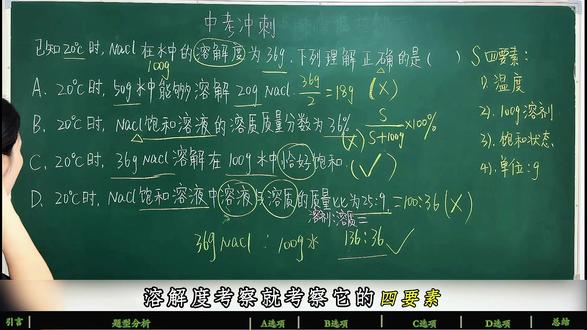 中考冲刺
已知20℃时,NaCl在水中的溶解度为36g.下列理解正确的是( )
100g
A. 20℃时,50g水中能够溶解20g NaCl. 36g/2=18g (X)
B. 20℃时,NaCl饱和溶液的溶质质量分数为36%. S/S+100g×100%
C. 20℃时,36g NaCl溶解在100g水中恰好饱和.(✓)
D. 20℃时,NaCl饱和溶液中溶液与溶质的质量比为25:9.=100:36(X)
溶剂:溶质=
36g NaCl : 100g水 136:36✓
S四要素:
1).温度
2).100g溶剂
3).饱和状态.
4).单位:g
溶解度考察就考察它的四要素
引言 题型分析 A选项 B选项 C选项 D选项 总结